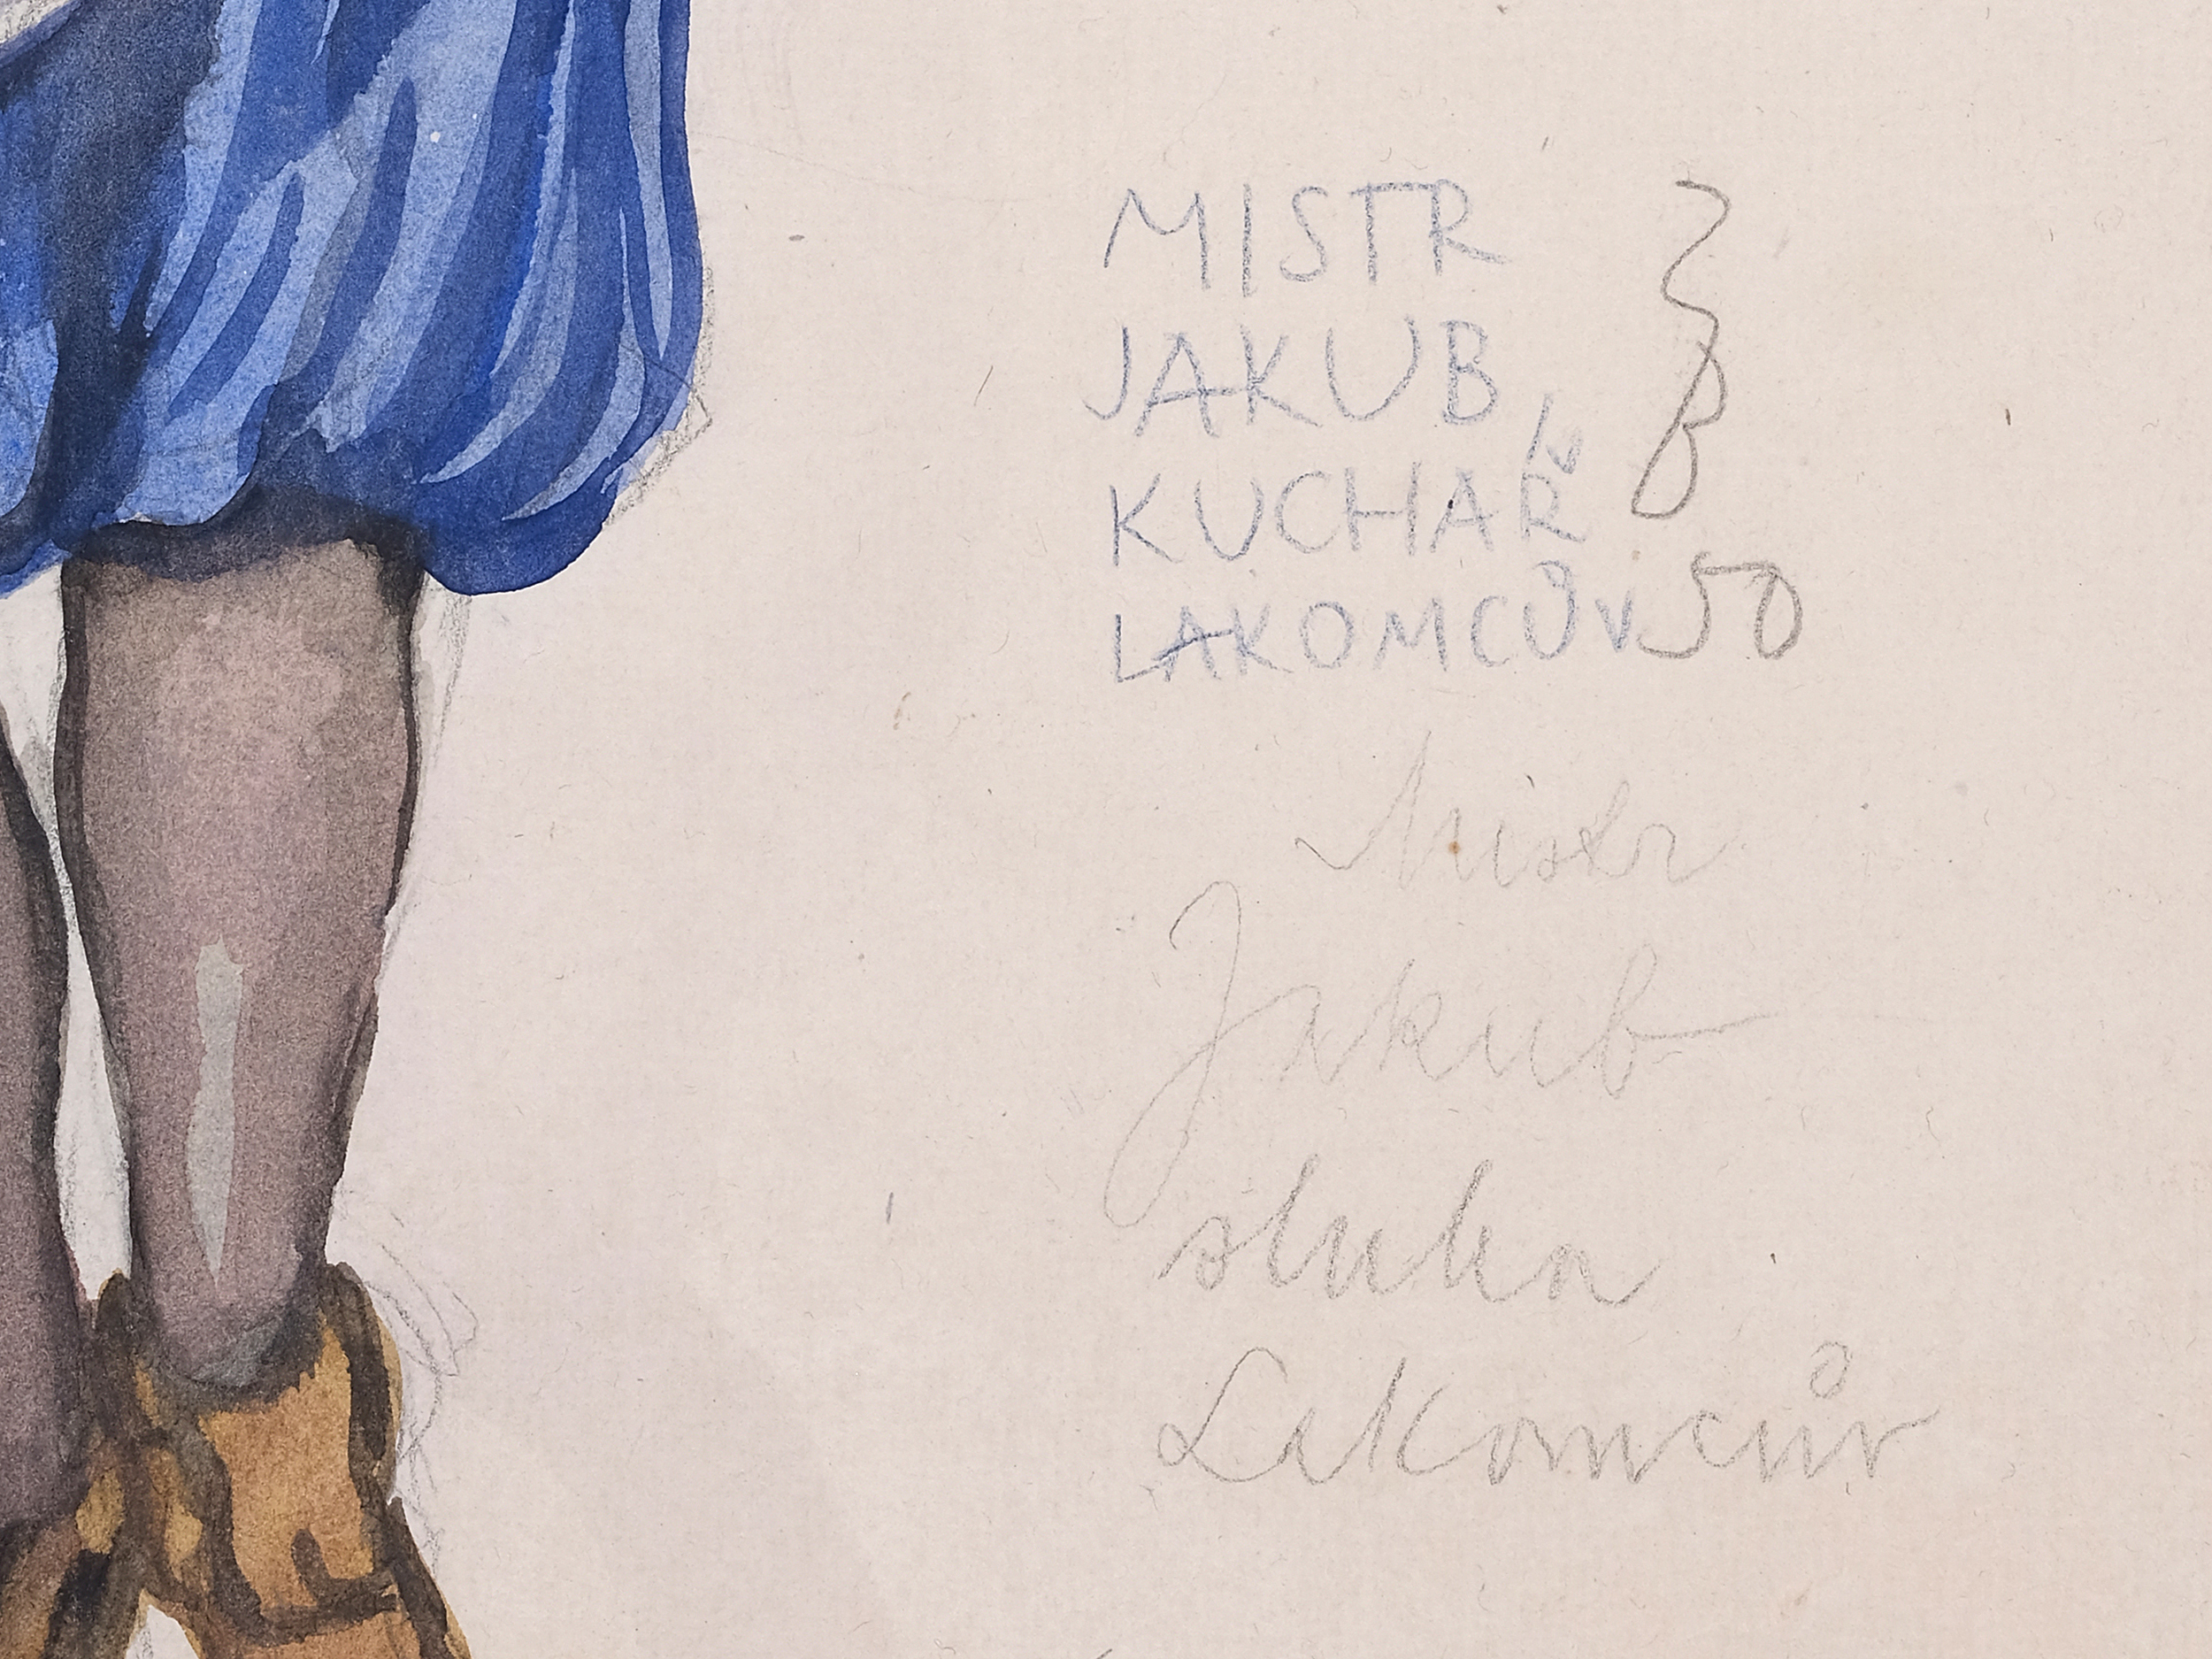 MISTR
JAKUB
KUCHAŘ
LAKOMCŮV 50
Mistr
Jakub
sluha
Lakomcův